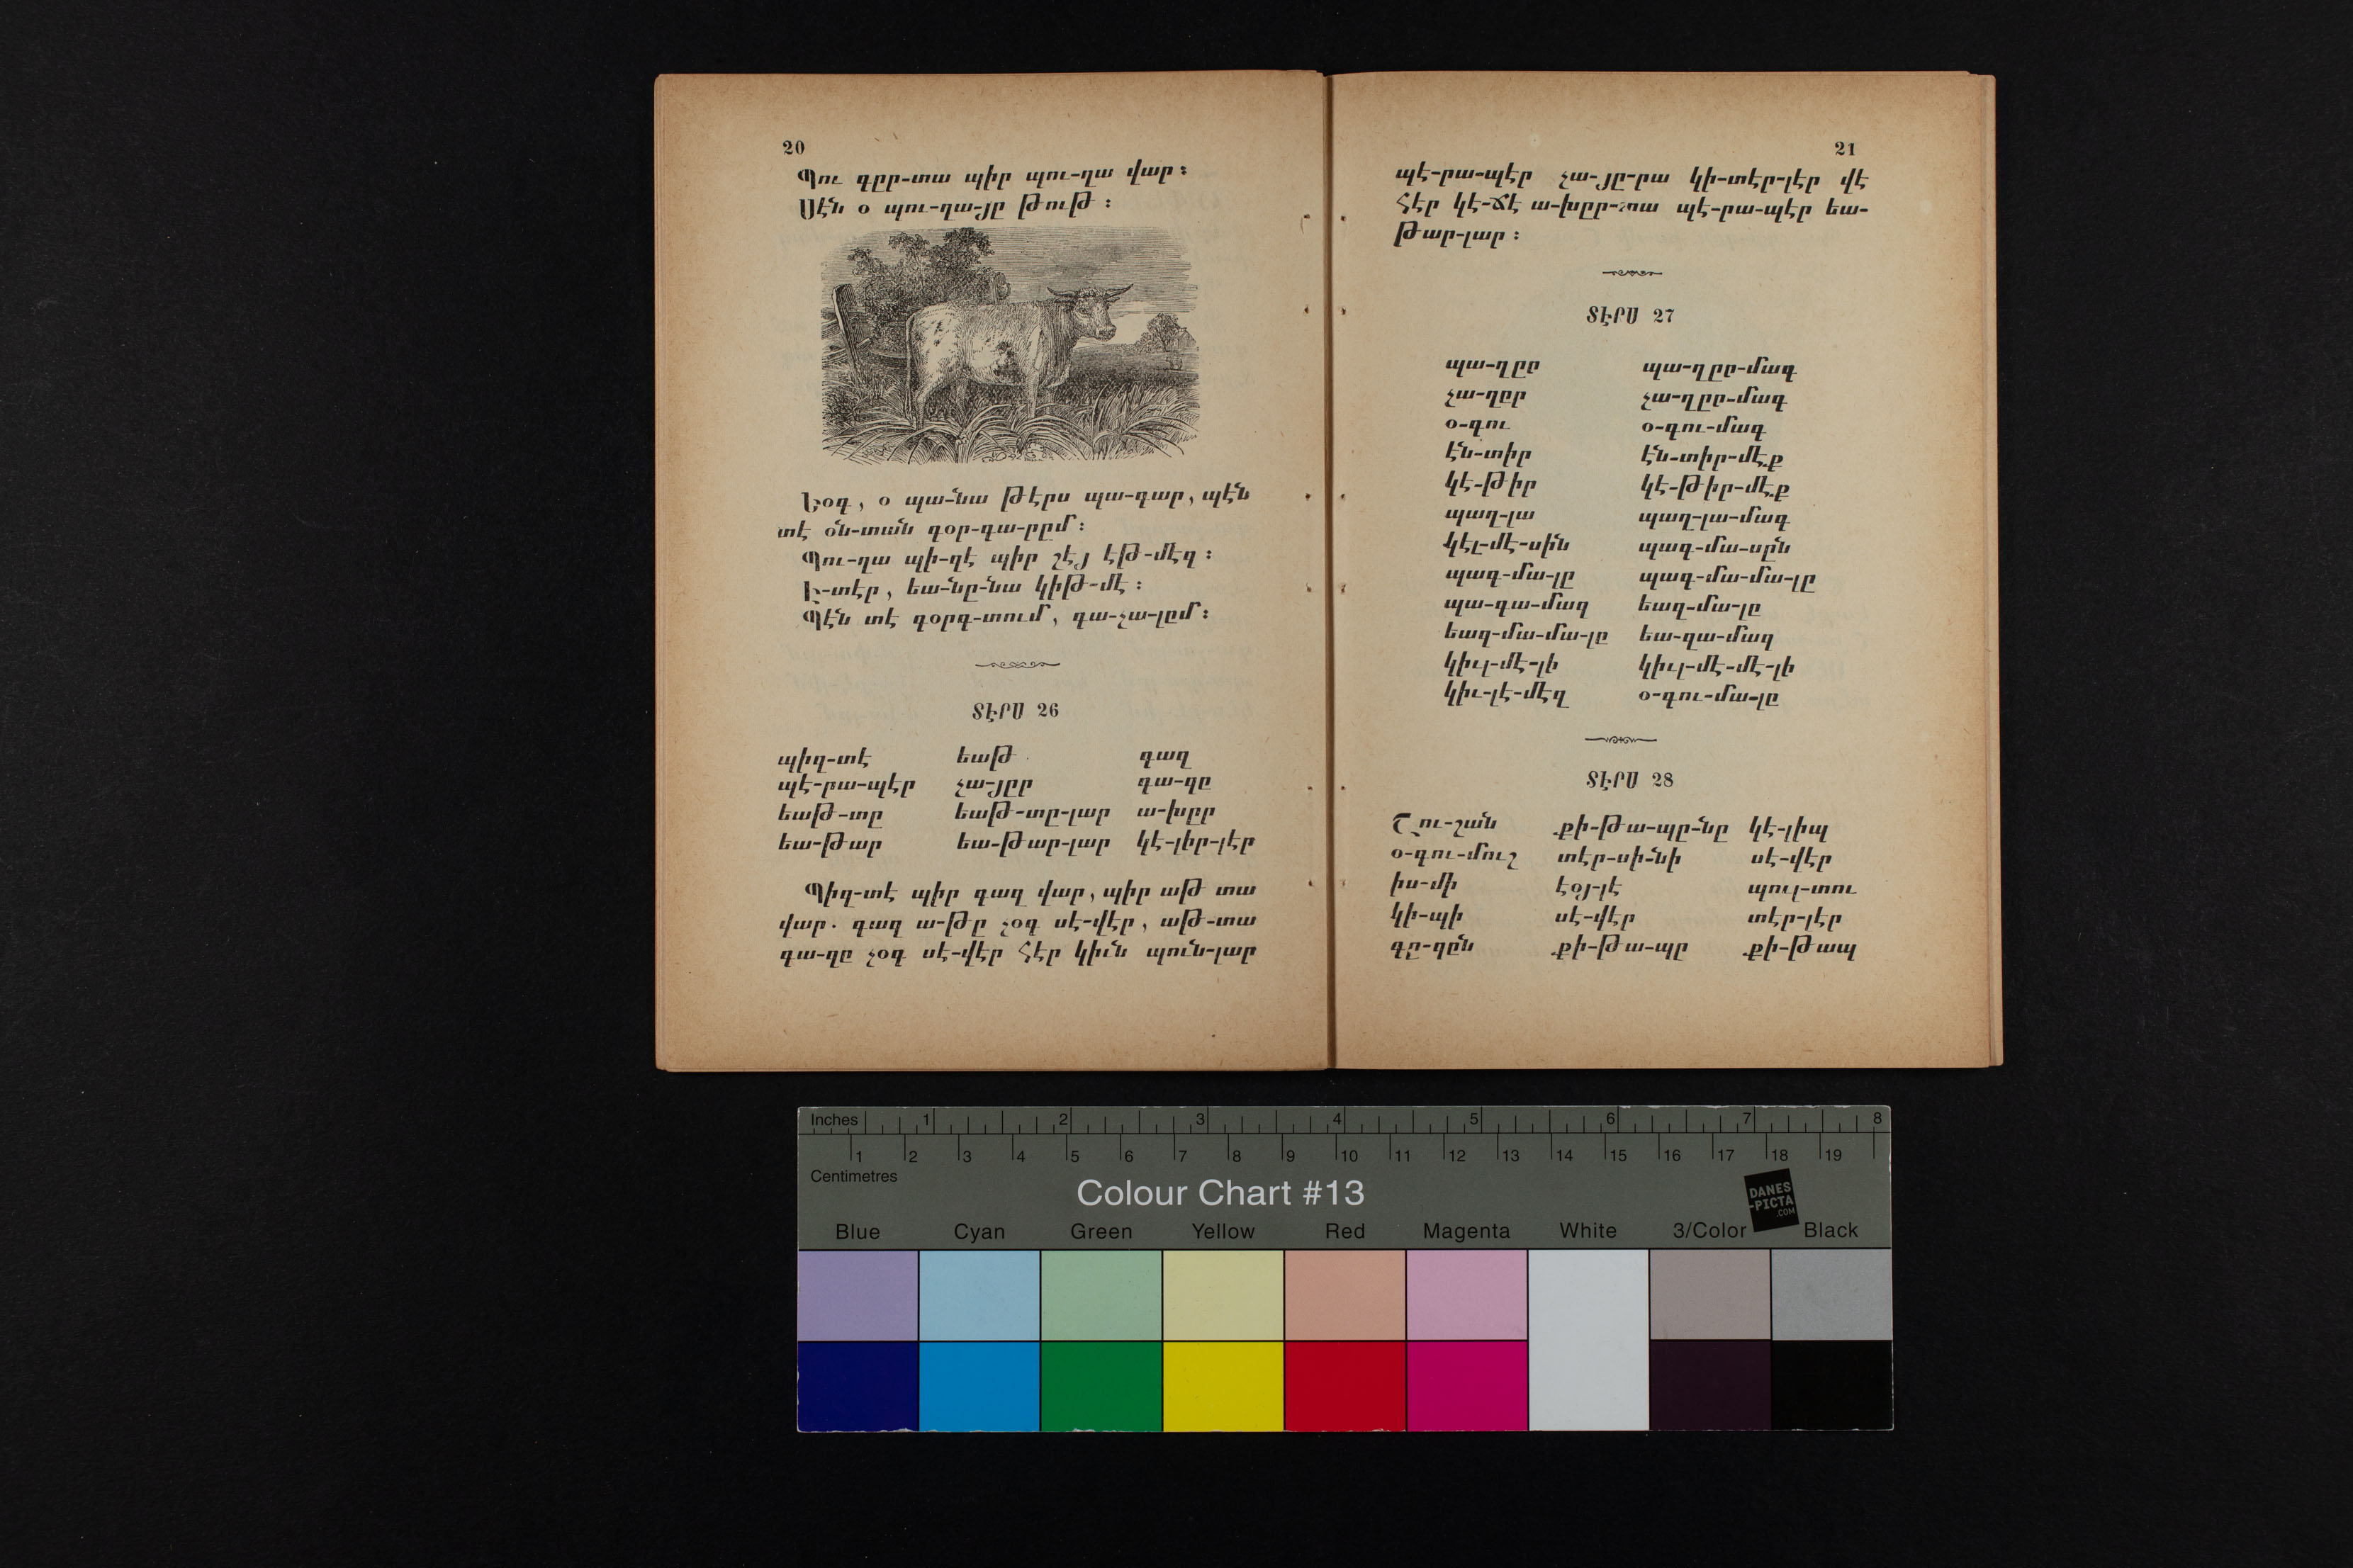 20
Պու գըր-տա պիր պու-ղա վար։
Սէն օ պու-ղա-յը թութ։
Եօգ, օ պա-նա թէրս պա-գար, պէն
տէ օն-տան գօր-գա-րըմ։
Պու-ղա պի-զէ պիր շէյ էթ-մէզ։
Ի-տէր, եա-նը-նա կիթ-մէ։
Պէն տէ գօրգ-տում, գա-չա-լըմ։
ՏԷՐՍ 26
պիզ-տէ եաթ գազ
պէ-րա-պէր չա-յըր գա-զը
եաթ-տը եաթ-տը-լար ա-խըր
եա-թար եա-թար-լար կէ-լիր-լէր
Պիզ-տէ պիր գազ վար, պիր աթ տա
վար. գազ ա-թը չօգ սէ-վէր, աթ-տա
գա-զը չօգ սէ-վէր հէր կիւն պուն-լար
21
պէ-րա-պէր չա-յը-րա կի-տէր-լէր վէ
հէր կէ-ճէ ա-խըր-տա պէ-րա-պէր եա-
թար-լար։
ՏԷՐՍ 27
պա-ղըր պա-ղըր-մագ
չա-ղըր չա-ղըր-մագ
օ-գու օ-գու-մագ
էն-տիր էն-տիր-մէք
կէ-թիր կէ-թիր-մէք
պաղ-լա պաղ-լա-մագ
կէլ-մէ-սին պագ-մա-սըն
պագ-մա-լը պագ-մա-մա-լը
պա-գա-մազ եազ-մա-լը
եազ-մա-մա-լը եա-զա-մազ
կիւլ-մէ-լի կիւլ-մէ-մէ-լի
կիւ-լէ-մէզ օ-գու-մա-լը
ՏԷՐՍ 28
Շու-շան քի-թա-պը-նը կէ-լիպ
օ-գու-մուշ տէր-սի-նի սէ-վէր
իս-մի էօյ-լէ պուլ-տու
կի-պի սէ-վէր տէր-լէր
գը-զըն քի-թա-պը քի-թապ
Inches 1 2 3 4 5 6 7 8
1 2 3 4 5 6 7 8 9 10 11 12 13 14 15 16 17 18 19
Centimetres
Colour Chart #13
DANES
-PICTA
.COM
Blue Cyan Green Yellow Red Magenta White 3/Color Black